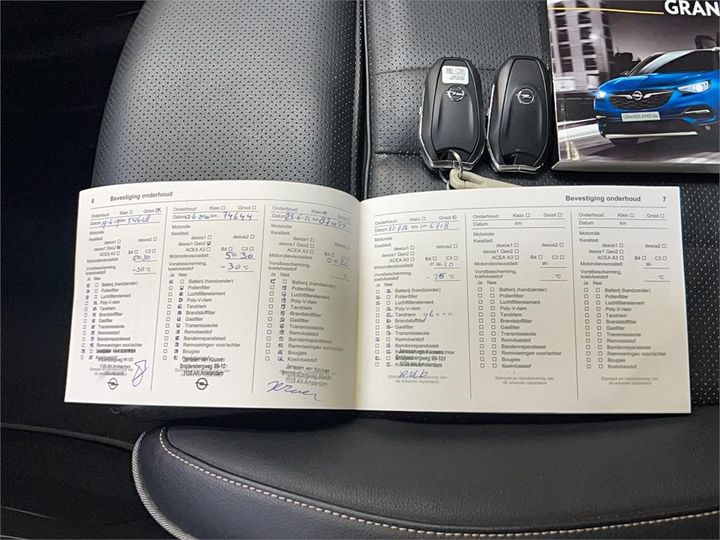 GRAN
GRANDLAND
6 Bevestiging onderhoud
Onderhoud: Klein Groot
Datum km 74628
Motorolie
Kwaliteit:
dexos1 dexos2
dexos1 Gen2
ACEA A3 B4 C3
Motorolieviscositeit:
5W-30
Vorstbescherming, koelvloeistof
-30 °C
Ja Nee
Batterij (handzender)
Pollenfilter
Luchtfilterelement
Poly-V-riem
Tandriem
Brandstoffilter
Gasfilter
Transmissieolie
Remvloeistof
Bandenreparatieset
Remvoeringen voor/achter
Bougies
Koelvloeistof
Onderhoud: Klein Groot
Datum km 74644
Motorolie
Kwaliteit:
dexos1 dexos2
dexos1 Gen2
ACEA A3 B4 C3
Motorolieviscositeit:
5W-30
Vorstbescherming, koelvloeistof
-30 °C
Ja Nee
Batterij (handzender)
Pollenfilter
Luchtfilterelement
Poly-V-riem
Tandriem
Brandstoffilter
Gasfilter
Transmissieolie
Remvloeistof
Bandenreparatieset
Remvoeringen voor/achter
Bougies
Koelvloeistof
Janssen van Kouwen
Snijdersbergweg 99-101
1105 AN Amsterdam
Onderhoud: Klein Groot
Datum km
Motorolie
Kwaliteit:
dexos1 dexos2
dexos1 Gen2
ACEA A3 B4 C3
Motorolieviscositeit:
Vorstbescherming, koelvloeistof
Ja Nee
Batterij (handzender)
Pollenfilter
Luchtfilterelement
Poly-V-riem
Tandriem
Brandstoffilter
Gasfilter
Transmissieolie
Remvloeistof
Bandenreparatieset
Remvoeringen voor/achter
Bougies
Koelvloeistof
Janssen van Kouwen
1105 AN Amsterdam
Bevestiging onderhoud 7
Onderhoud: Klein Groot
Datum km
Motorolie
Kwaliteit:
dexos1 dexos2
dexos1 Gen2
ACEA A3 B4 C3
Motorolieviscositeit:
0W-20
Vorstbescherming, koelvloeistof
-25 °C
Ja Nee
Batterij (handzender)
Pollenfilter
Luchtfilterelement
Poly-V-riem
Tandriem
Brandstoffilter
Gasfilter
Transmissieolie
Remvloeistof
Bandenreparatieset
Remvoeringen voor/achter
Janssen van Kouwen
Snijdersbergweg 99-101
1105 AN Amsterdam
Onderhoud: Klein Groot
Datum km
Motorolie
Kwaliteit:
dexos1 dexos2
dexos1 Gen2
ACEA A3 B4 C3
Motorolieviscositeit: W-
Vorstbescherming, koelvloeistof °C
Ja Nee
Batterij (handzender)
Pollenfilter
Luchtfilterelement
Poly-V-riem
Tandriem
Brandstoffilter
Gasfilter
Transmissieolie
Remvloeistof
Bandenreparatieset
Remvoeringen voor/achter
Bougies
Koelvloeistof
Stempel en handtekening van de erkende reparateur
Onderhoud: Klein Groot
Datum km
Motorolie
Kwaliteit:
dexos1 dexos2
dexos1 Gen2
ACEA A3 B4 C3
Motorolieviscositeit: W-
Vorstbescherming, koelvloeistof °C
Ja Nee
Batterij (handzender)
Pollenfilter
Luchtfilterelement
Poly-V-riem
Tandriem
Brandstoffilter
Gasfilter
Transmissieolie
Remvloeistof
Bandenreparatieset
Remvoeringen voor/achter
Bougies
Koelvloeistof
Stempel en handtekening van de erkende reparateur